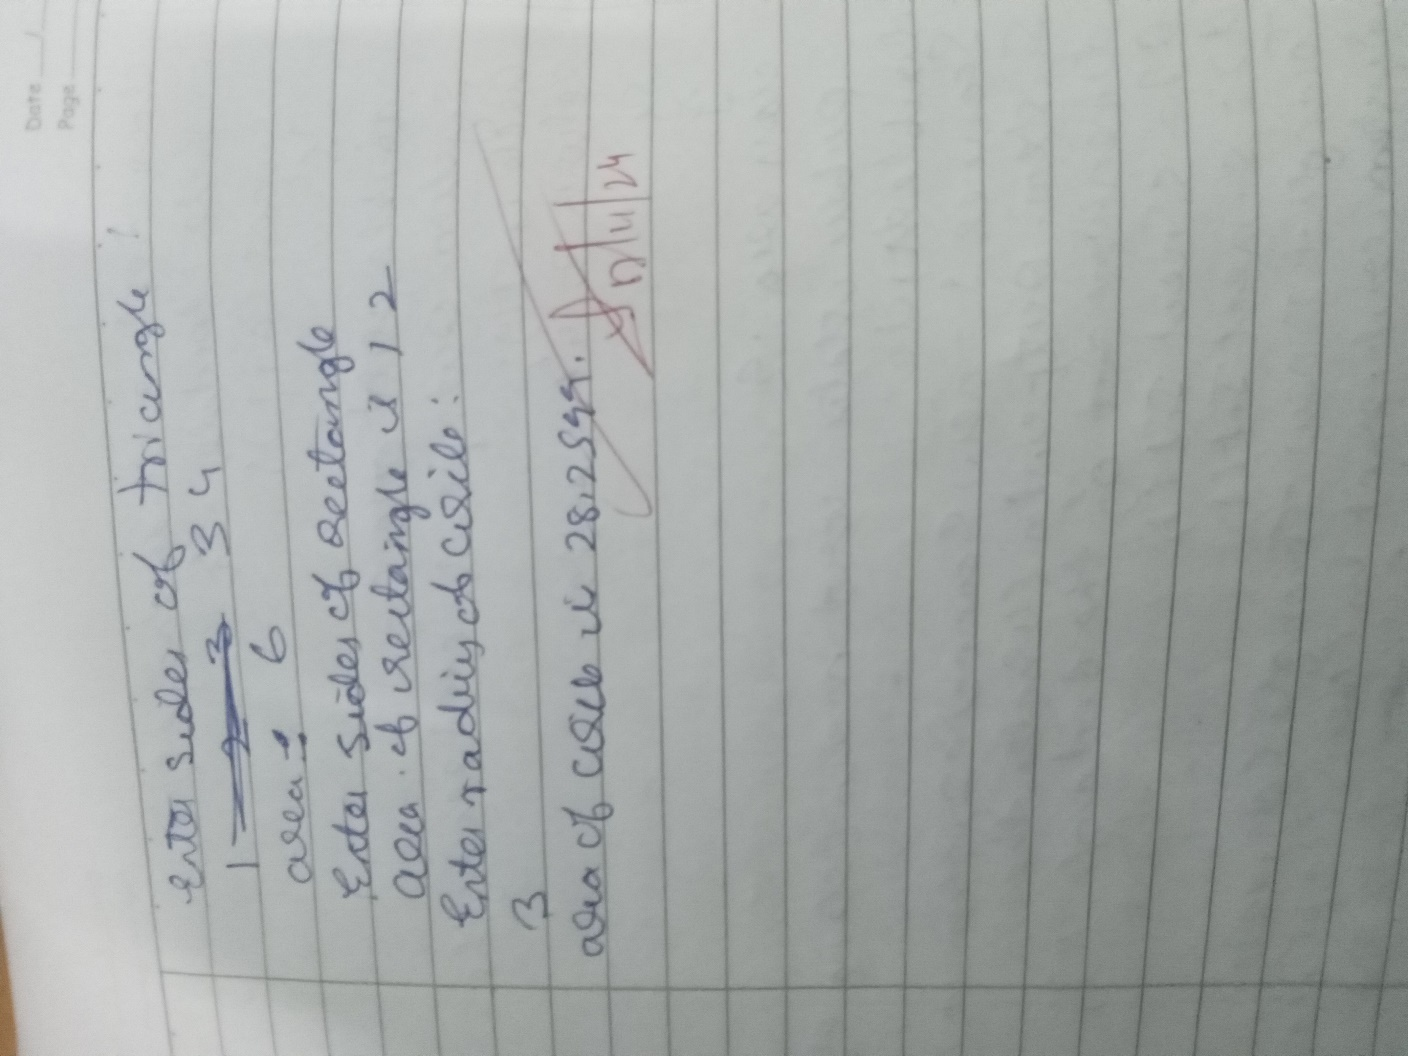 Date
Page
Enter sides of triangle :
1 2 3 3 4
area : 6
Enter sides of rectangle
Area of rectangle is 12
Enter radius of circle :
3
area of circle is 28.2599.
12/11/24